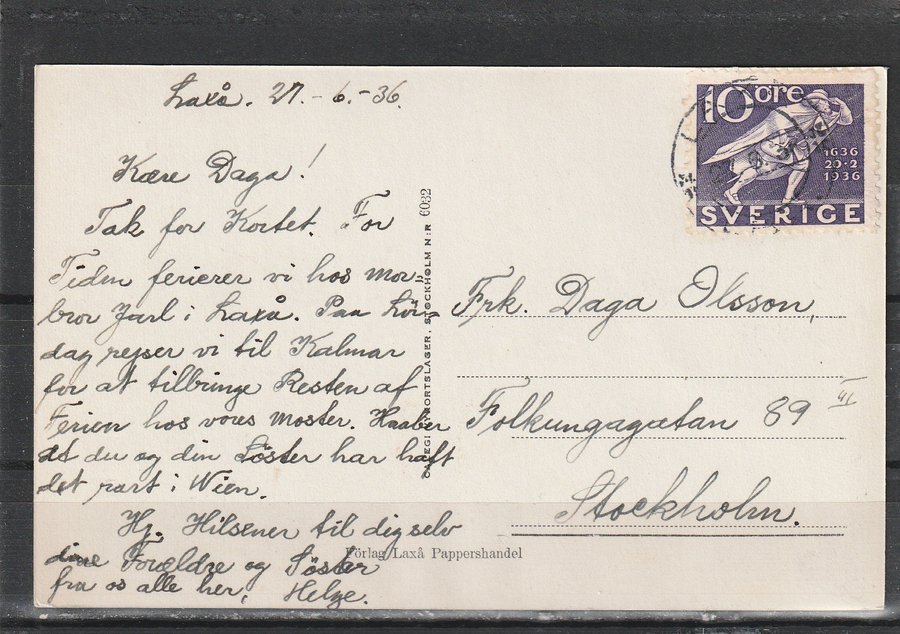 Laxå. 27.-6.-36.
Kære Daga!
Tak for Kortet. For
Tiden ferierer vi hos mor-
bror Jarl i Laxå. Paa Lör-
dag rejser vi til Kalmar
for at tilbringe Resten af
Ferien hos vores moster. Haaber
at du og din Söster har haft
det rart i Wien.
Hj. Hilsener til dig selv
dine Forældre og Söster
fra os alle her, Helge.
Förlag Laxå Pappershandel
STOCKHOLM N:R 6032
10 öre
1636
20-2
1936
SVERIGE
Frk. Daga Olsson,
Folkungagatan 89
Stockholm.